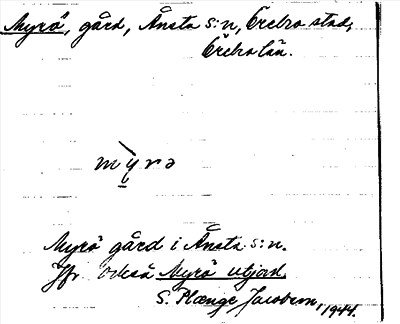 Myrö, gård, Ånsta s:n, Örebro stad,
Örebro län.
m̀y̱rə
Myrö gård i Ånsta s:n.
Jfr också Myrö utjord.
S. Plænge Jacobson, 1944.